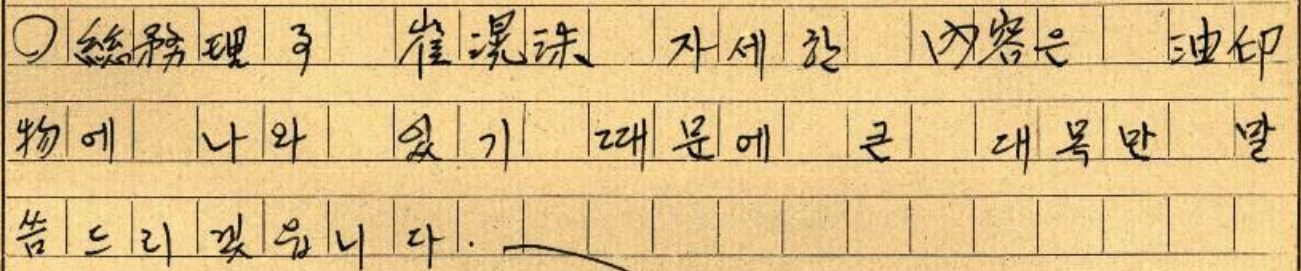 ○總務理事 崔滉洙 자세한 內容은 油印
物에 나와 있기 때문에 큰 대목만 말
씀드리겠읍니다.